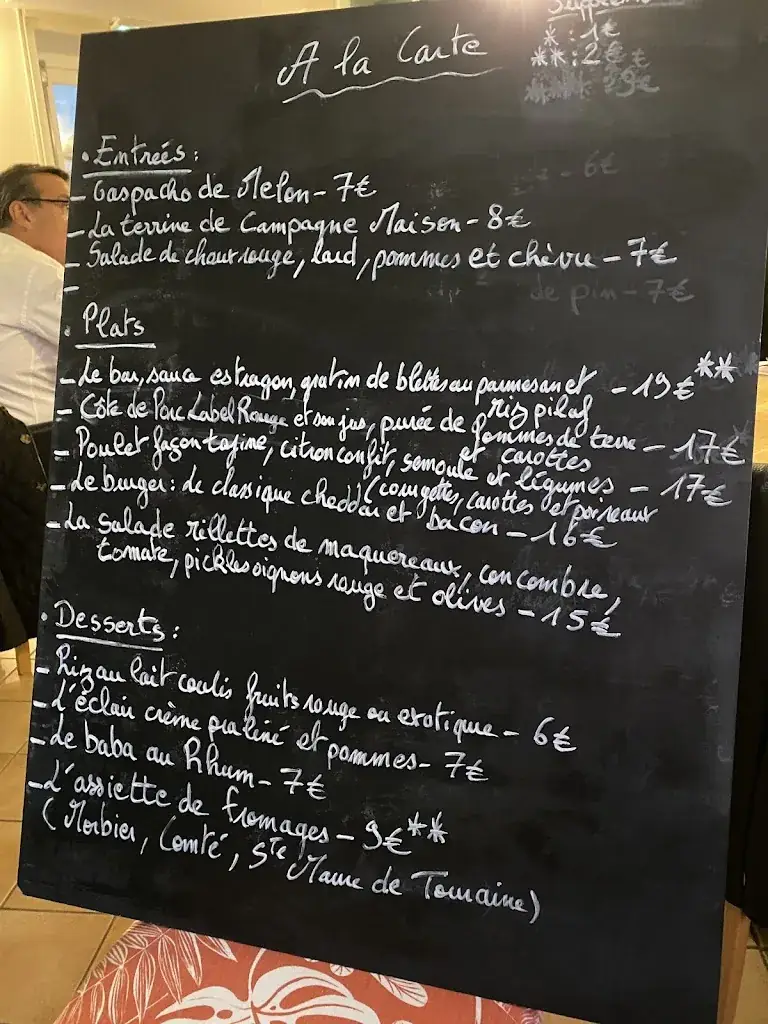 A la Carte
Supplément
* : 1€
** : 2€
• Entrées :
- Gaspacho de Melon - 7€
- La terrine de Campagne Maison - 8€
- Salade de chou rouge, lard, pommes et chèvre - 7€
-
• Plats
- Le bar, sauce estragon, gratin de blettes au parmesan et - 19€**
riz pilaf
- Côte de Porc Label Rouge et son jus, purée de pommes de terre - 17€
et carottes
- Poulet façon tajine, citron confit, semoule et légumes - 17€
(courgettes, carottes et poireaux
- Le burger : le classique cheddar et bacon - 16€
- La Salade rillettes de maquereaux, concombre,
tomate, pickles oignons rouge et olives - 15€
• Desserts :
- Riz au lait coulis fruits rouge ou exotique - 6€
- L'éclair crème praliné et pommes - 7€
- Le baba au Rhum - 7€
- L'assiette de fromages - 9€**
(Morbier, Comté, Ste Maure de Touraine)